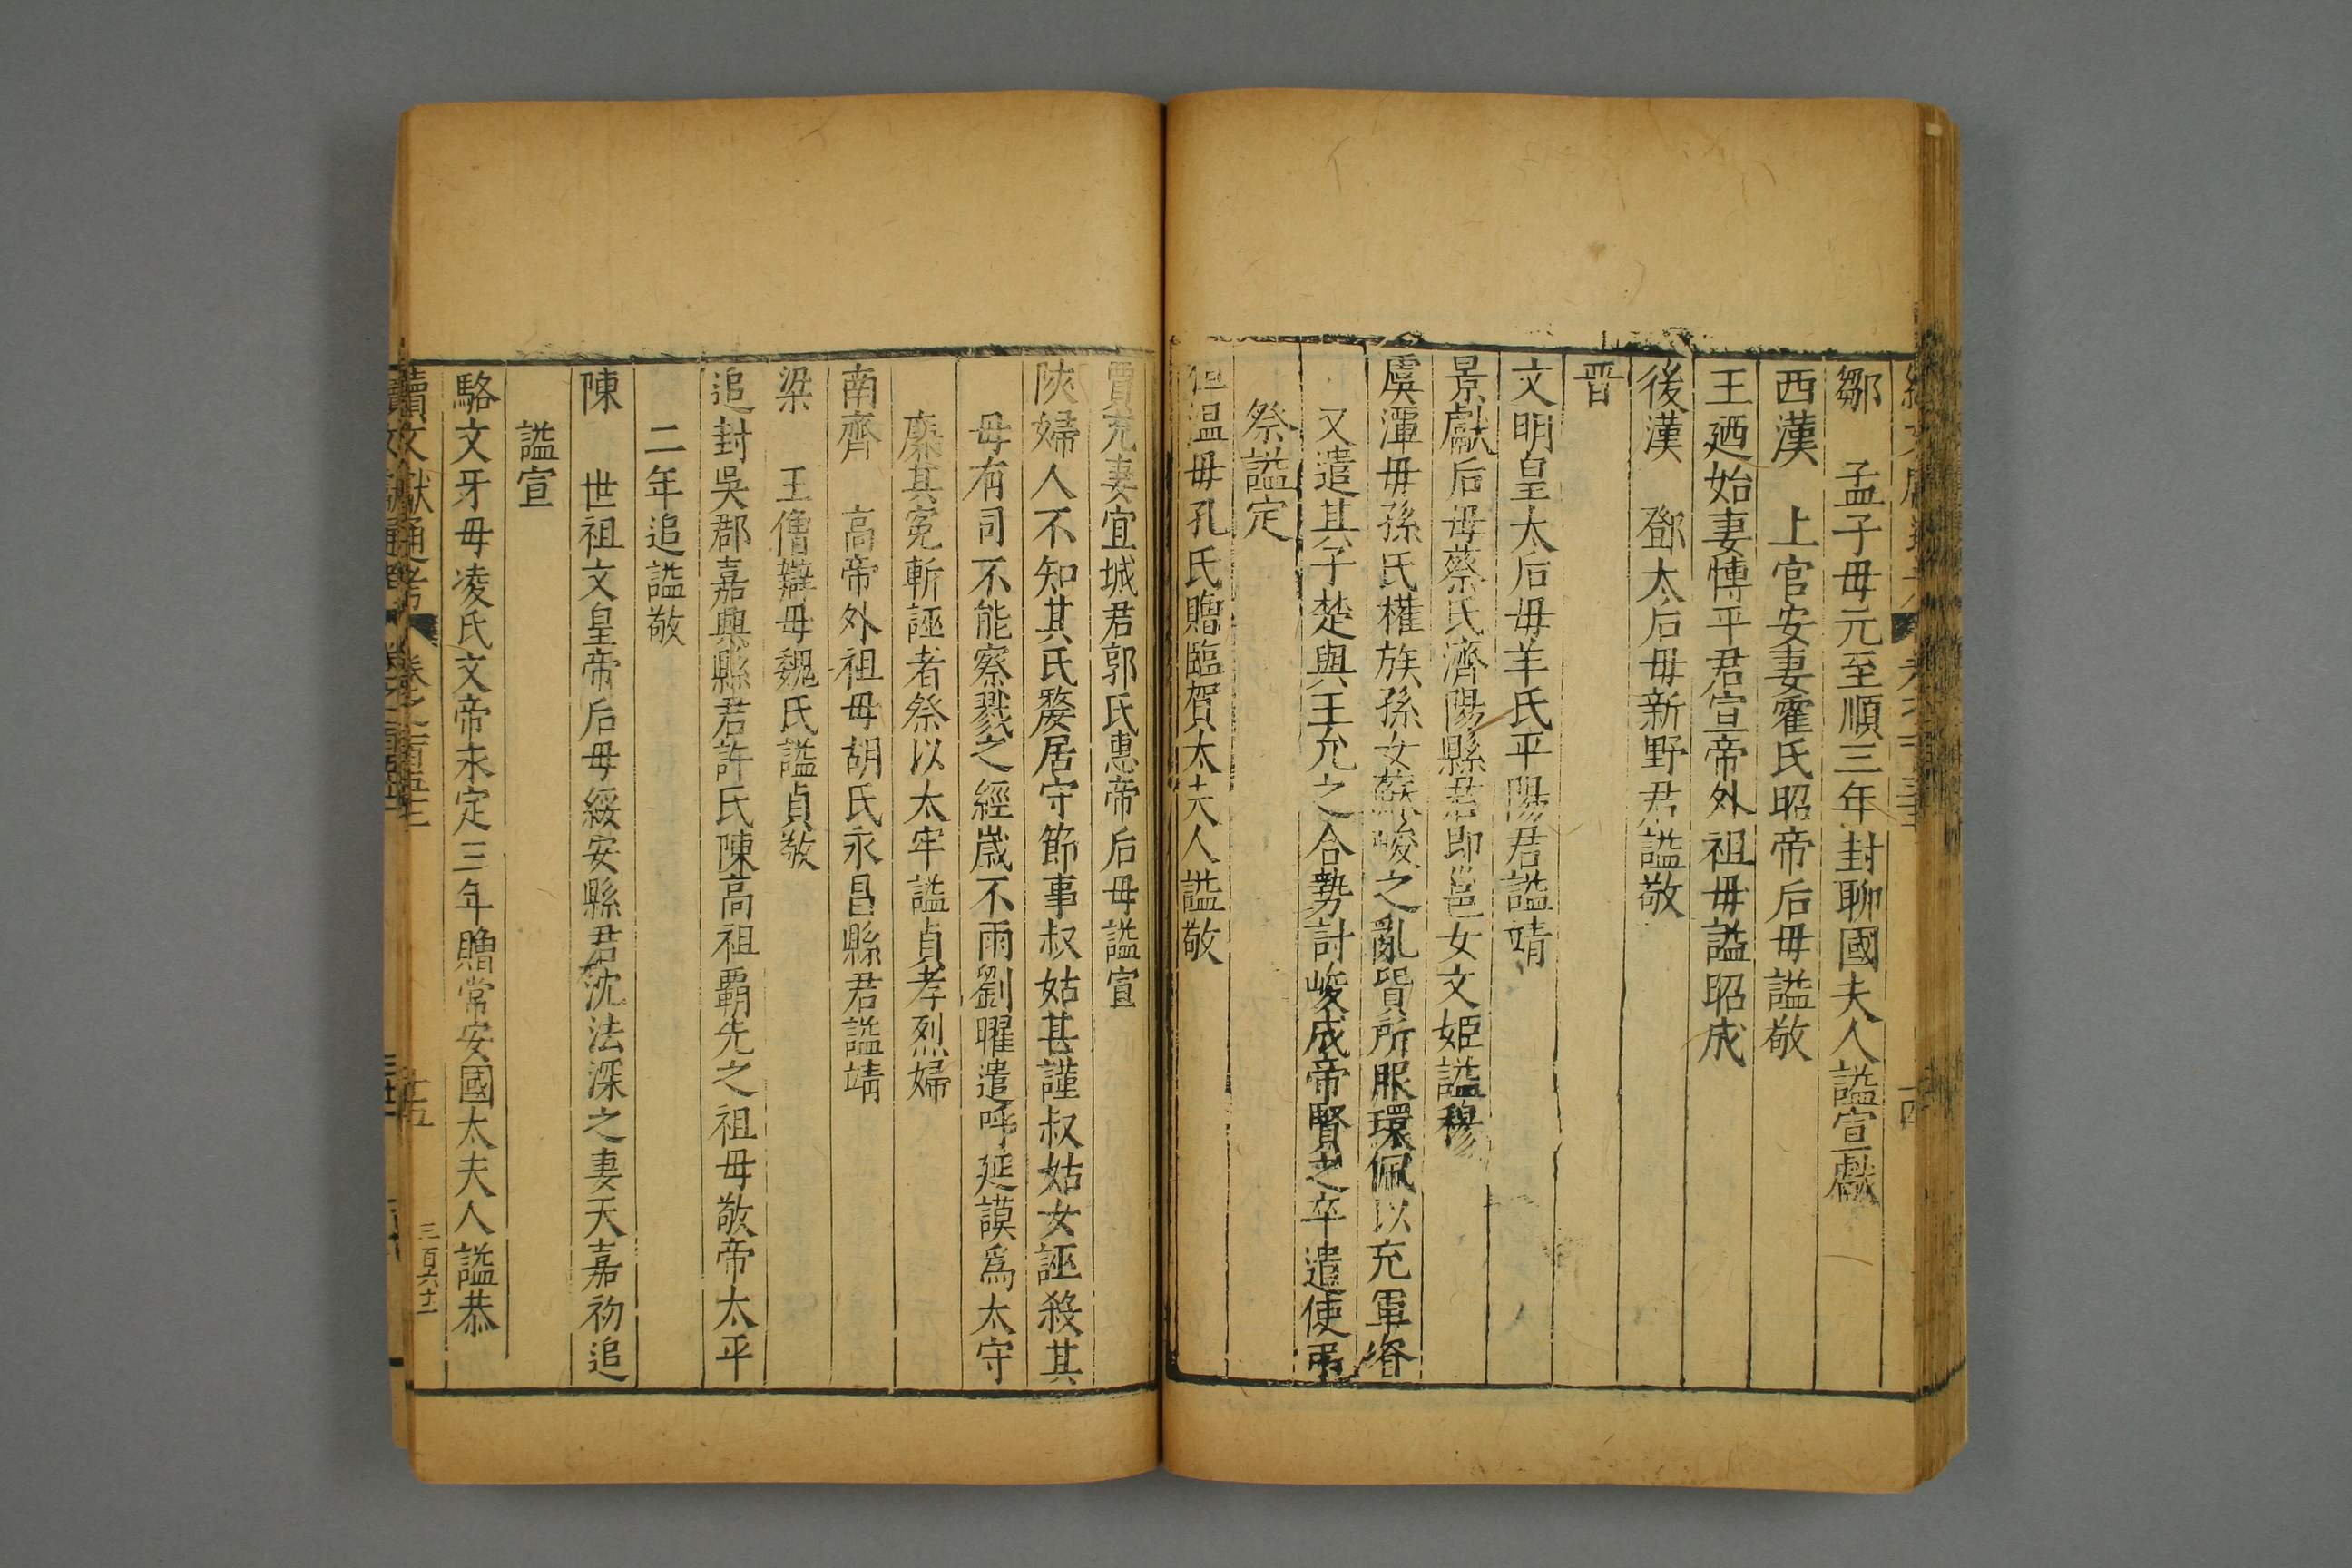 鄒　孟子母元至順三年封聊國夫人謚宣獻
西漢　上官安妻霍氏昭帝后母謚敬
王廼始妻愽平君宣帝外祖母謚昭成
後漢　鄧太后母新野君謚敬
晋
文明皇太后母羊氏平陽君謚靖
景獻后母蔡氏濟陽縣君即邕女文姬謚穆
虞潭母孫氏權族孫女蘇峻之亂貿所服環佩以充軍資
又遣其子楚與王允之合勢討峻成帝賢之卒遣使弔
祭謚定
溫母孔氏贈臨賀太夫人謚敬
賈充妻宜城君郭氏惠帝后母謚宣
陜婦人不知其氏嫠居守節事叔姑甚謹叔姑女誣殺其
母有司不能察戮之經歲不雨劉曜遣呼延謨爲太守
廉其寃斬誣者祭以太牢謚貞孝烈婦
南齊　高帝外祖母胡氏永昌縣君謚靖
梁　王僧辯母魏氏謚貞敬
追封吳郡嘉興縣君許氏陳高祖覇先之祖母敬帝太平
二年追謚敬
陳　世祖文皇帝后母綏安縣君沈法深之妻天嘉初追
謚宣
駱文牙母凌氏文帝未定三年贈常安國太夫人謚恭
續文獻通考
十五
三百六十一